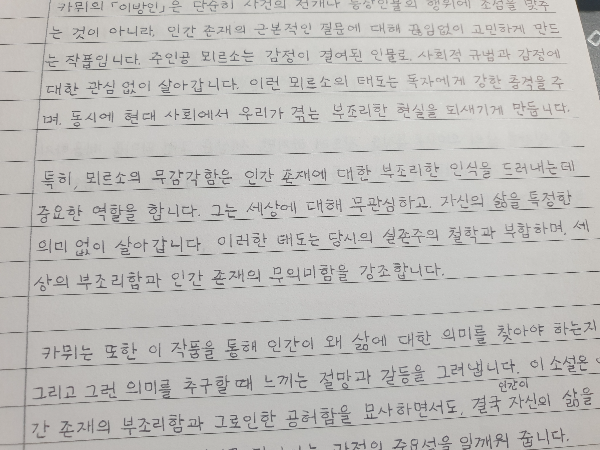 카뮈의 「이방인」은 단순히 사건의 전개나 등장인물의 행위에 초점을 맞추
는 것이 아니라, 인간 존재의 근본적인 질문에 대해 끊임없이 고민하게 만드
는 작품입니다. 주인공 뫼르소는 감정이 결여된 인물로, 사회적 규범과 감정에
대한 관심 없이 살아갑니다. 이런 뫼르소의 태도는 독자에게 강한 충격을 주
며, 동시에 현대 사회에서 우리가 겪는 부조리한 현실을 되새기게 만듭니다.
특히, 뫼르소의 무감각함은 인간 존재에 대한 부조리한 인식을 드러내는데
중요한 역할을 합니다. 그는 세상에 대해 무관심하고, 자신의 삶을 특정한
의미 없이 살아갑니다. 이러한 태도는 당시의 실존주의 철학과 부합하며, 세
상의 부조리함과 인간 존재의 무의미함을 강조합니다.
카뮈는 또한 이 작품을 통해 인간이 왜 삶에 대한 의미를 찾아야 하는지
그리고 그런 의미를 추구할 때 느끼는 절망과 갈등을 그려냅니다. 이 소설은
인간이
간 존재의 부조리함과 그로인한 공허함을 묘사하면서도, 결국 자신의 삶을
과정의 중요성을 일깨워 줍니다.